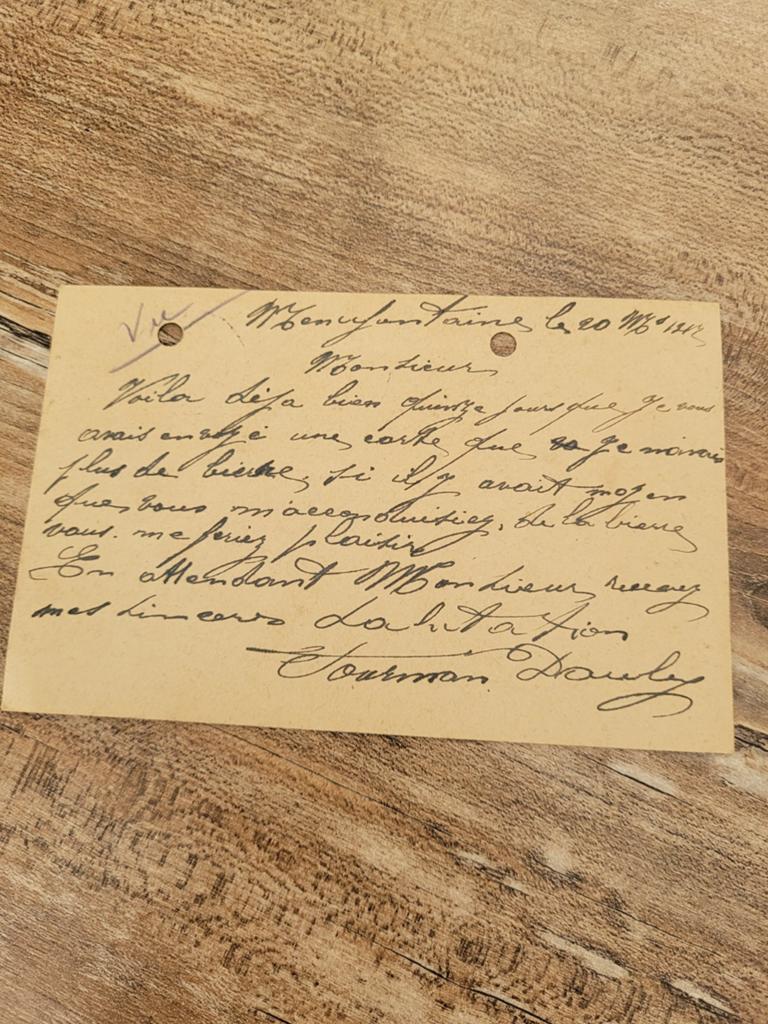 Vu
Menufontaine le 20 Ms
Monsieur
Voila déja bien quinze jours que je vous
avais envoyé une carte que je n'avais
plus de bierre, si il y avait moyen
que vous m'accen de la bierre
vous me feriez plaisir
En attendant Monsieur recevez
mes sinceres Salutation
Tourman